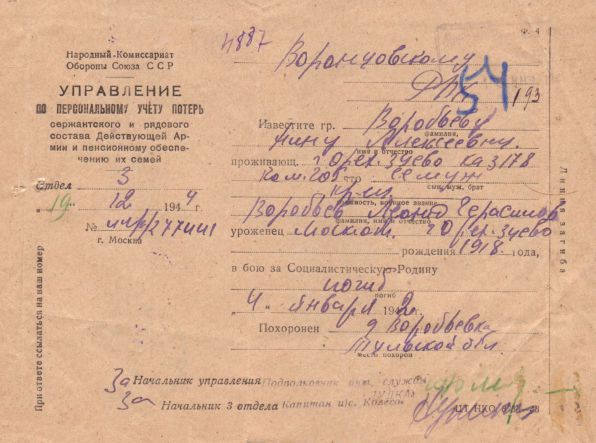 4887
Народный Комиссариат
Обороны Союза ССР
УПРАВЛЕНИЕ
ПО ПЕРСОНАЛЬНОМУ УЧЁТУ ПОТЕРЬ
сержантского и рядового
состава Действующей Ар-
мии и пенсионному обеспе-
чению их семей
Отдел 3
"19" 12 1944
№ 277441
г. Москва
При ответе ссылаться на наш номер
Ф. 4
Воронцовскому
54
193
Известите гр. Воробьеву
фамилия,
Нину Алексеевну
имя и отчество
проживающ. г Орех. Зуево каз 178
ком. что муж
сын, муж, брат
звание
Воробьев Леонид Герасимов
фамилия, имя и отчество
уроженец Моск. г Орех. Зуево
рождения 1918 года,
в бою за Социалистическую Родину
погиб
погиб
"4" января 1942
Похоронен д Воробьевка
Тульской обл.
место похорон
За Начальник управления Подполковник инт. службы
За Начальник 3 отдела Капитан
Линия загиба